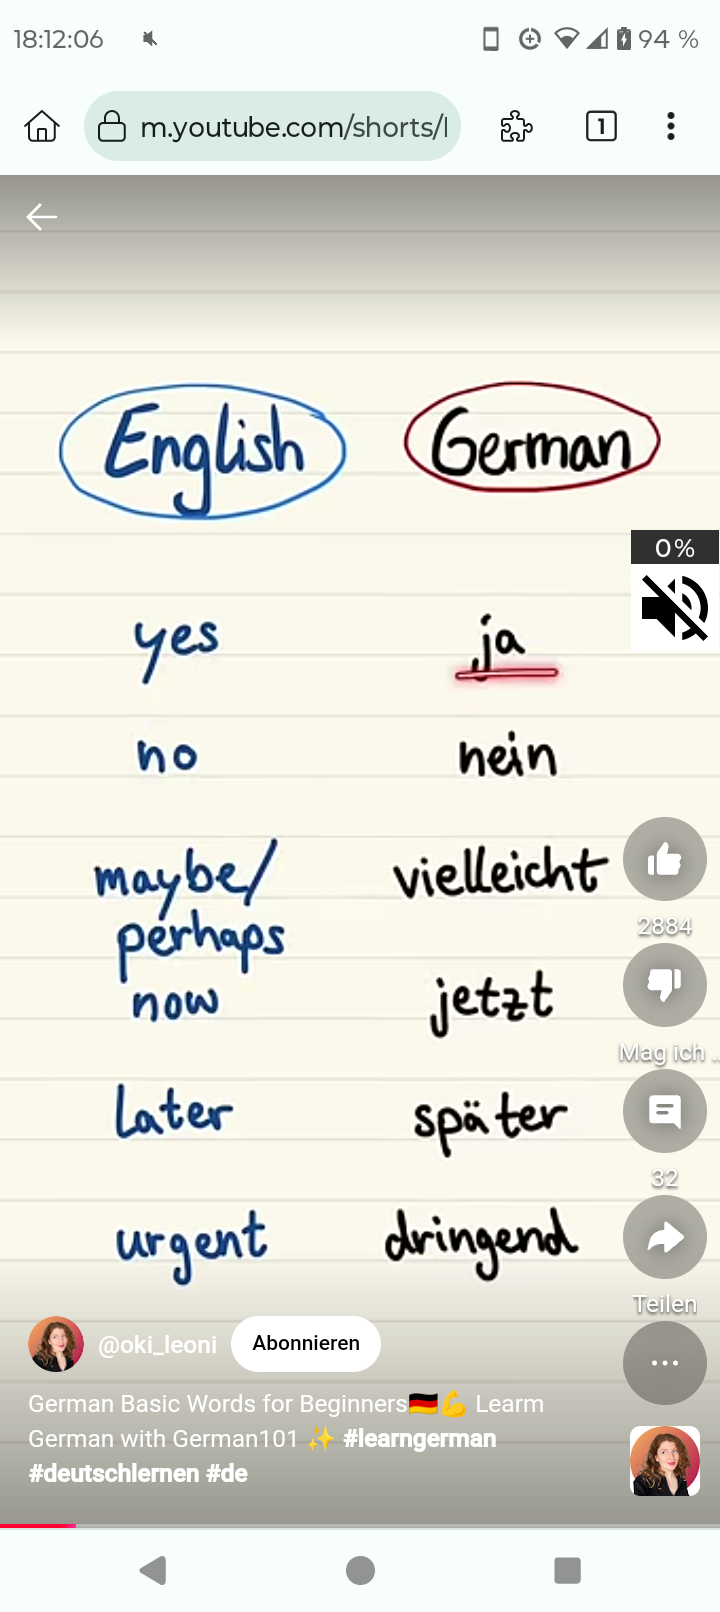 18:12:06 94 %
m.youtube.com/shorts/
1
English German
0%
yes ja
no nein
maybe/ vielleicht
perhaps
now jetzt
later später
urgent dringend
2884
Mag ich ..
32
Teilen
@oki_leoni Abonnieren
German Basic Words for Beginners🇩🇪💪 Learm
German with German101 ✨ #learngerman
#deutschlernen #de